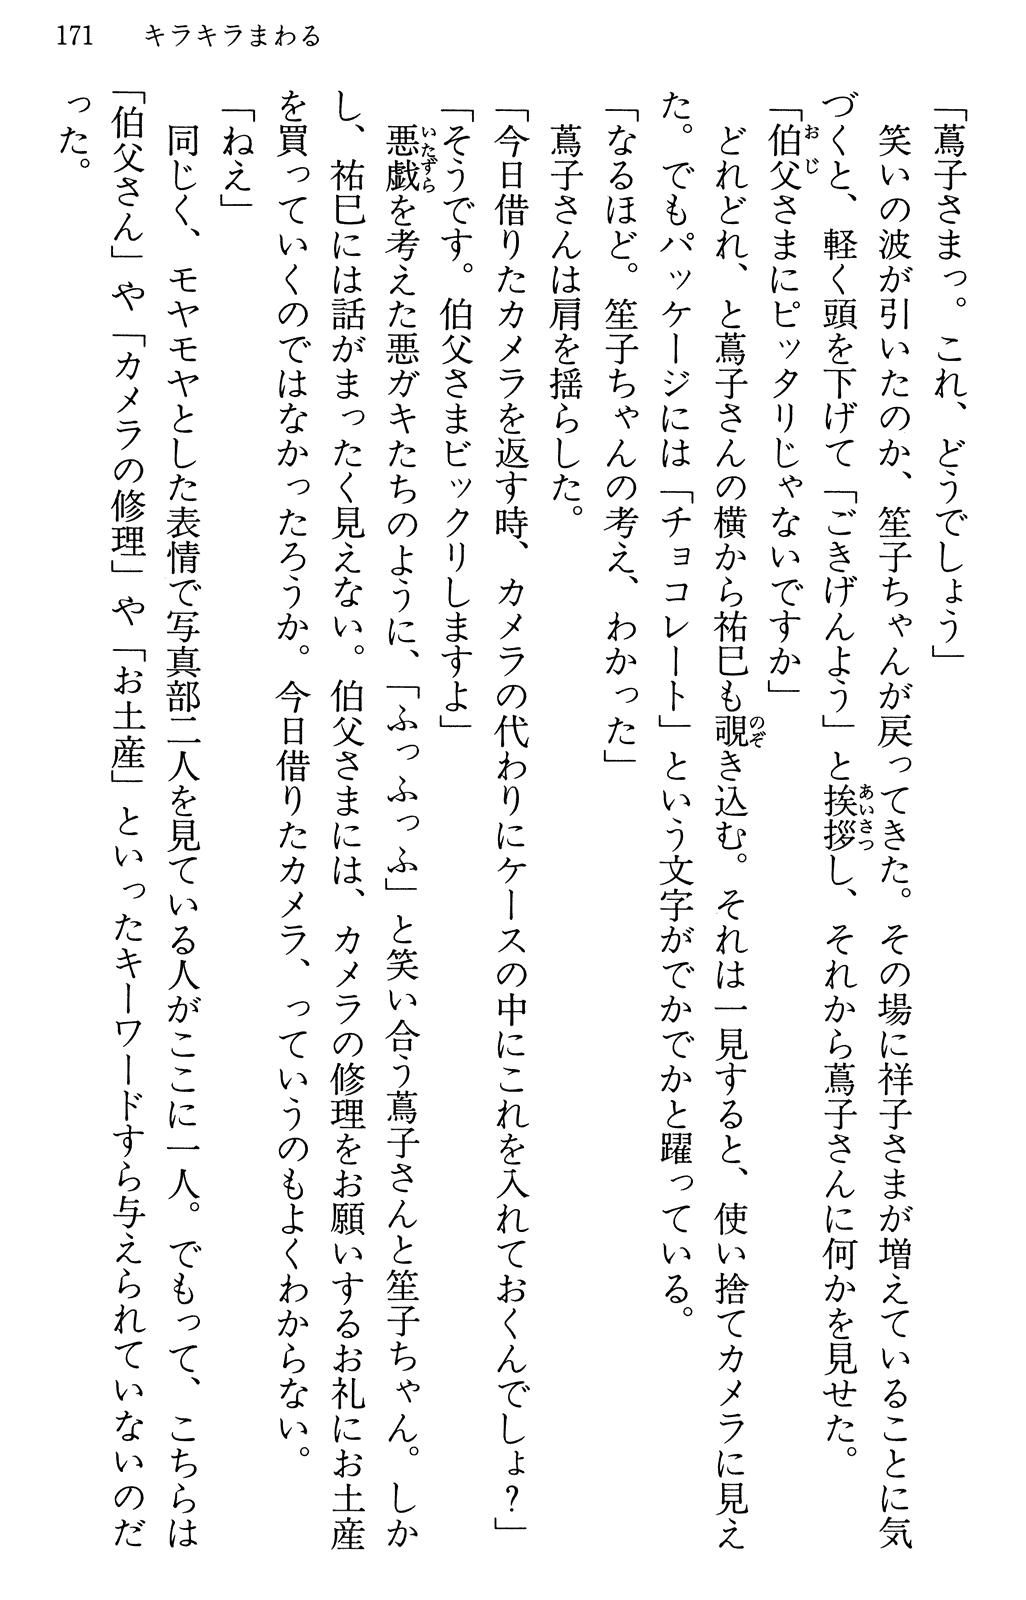 171 キラキラまわる
「蔦子さまっ。これ、どうでしょう」
笑いの波が引いたのか、笙子ちゃんが戻ってきた。その場に祥子さまが増えていることに気
づくと、軽く頭を下げて「ごきげんよう」と挨拶し、それから蔦子さんに何かを見せた。
「伯父さまにピッタリじゃないですか」
どれどれ、と蔦子さんの横から祐巳も覗き込む。それは一見すると、使い捨てカメラに見え
た。でもパッケージには「チョコレート」という文字がでかでかと躍っている。
「なるほど。笙子ちゃんの考え、わかった」
蔦子さんは肩を揺らした。
「今日借りたカメラを返す時、カメラの代わりにケースの中にこれを入れておくんでしょ?」
「そうです。伯父さまビックリしますよ」
悪戯を考えた悪ガキたちのように、「ふっふっふ」と笑い合う蔦子さんと笙子ちゃん。しか
し、祐巳には話がまったく見えない。伯父さまには、カメラの修理をお願いするお礼にお土産
を買っていくのではなかったろうか。今日借りたカメラ、っていうのもよくわからない。
「ねえ」
同じく、モヤモヤとした表情で写真部二人を見ている人がここに一人。でもって、こちらは
「伯父さん」や「カメラの修理」や「お土産」といったキーワードすら与えられていないのだ
った。